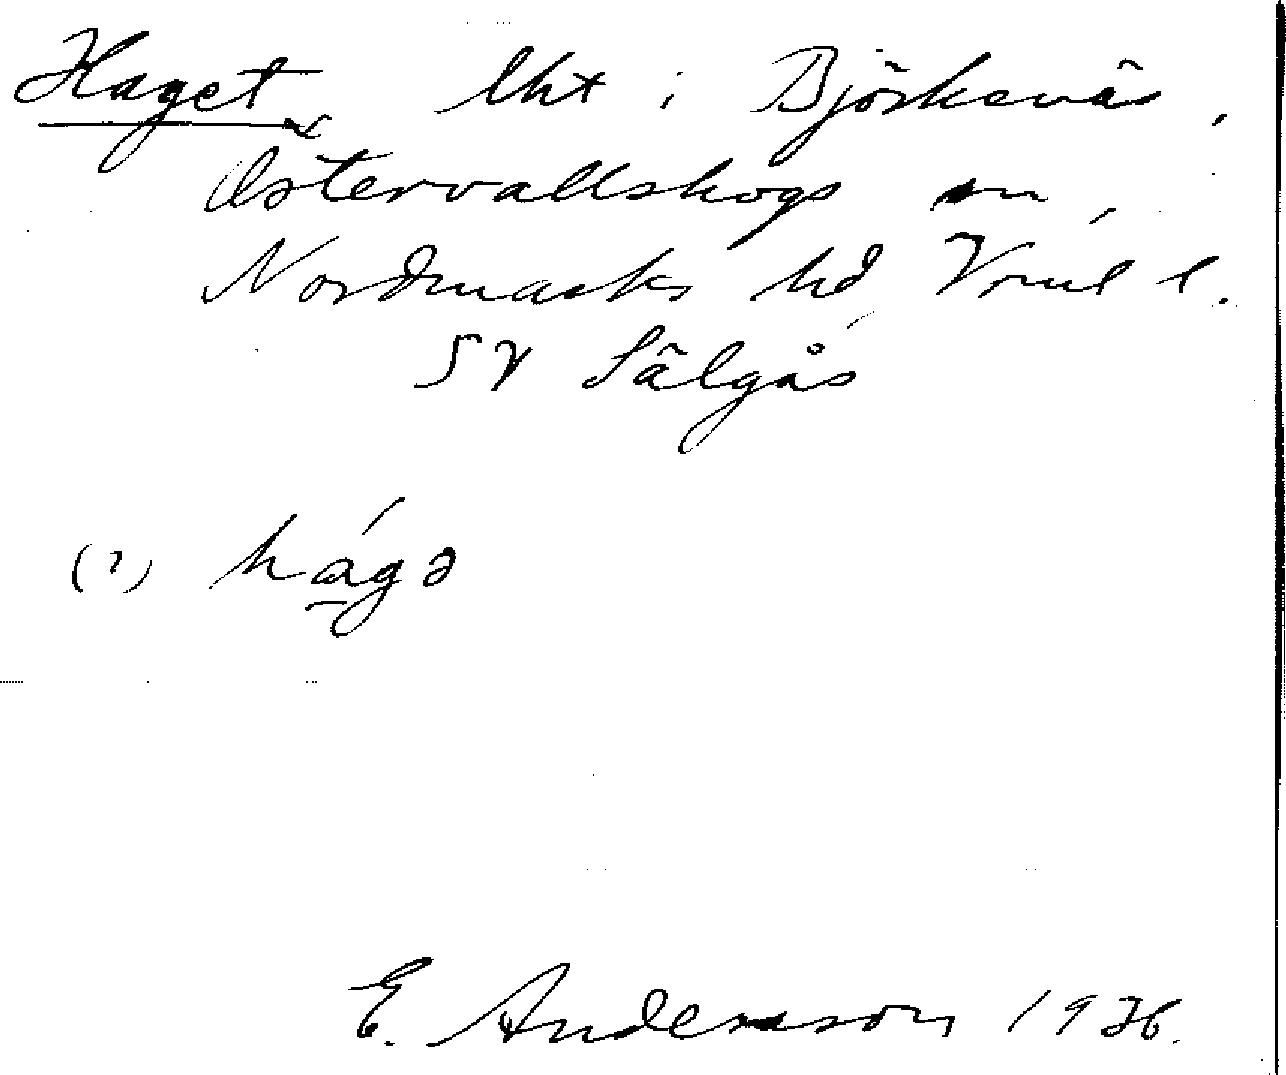 Haget lht i Björkenäs,
Östervallskogs sn,
Nordmarks hd, Vrml l.
5V Sälgås
(?) hágə
E. Andersson 1936.